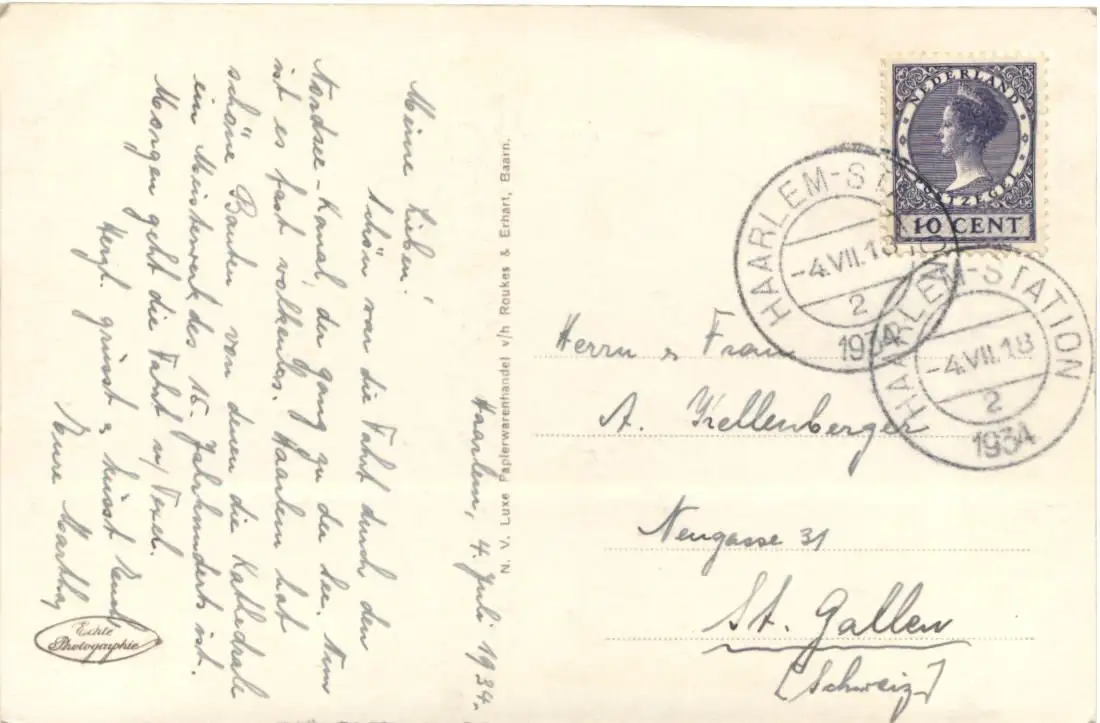 Haarlem, 4. Juli 1934.
Meine Lieben!
Schön war die Fahrt durch den
Nordsee-Kanal, der Gang zu der See. Nun
ist es fast wolkenlos. Haarlem hat
schöne Bauten von denen die Kathedrale
ein Meisterwerk des 15. Jahrhunderts ist.
Morgen geht die Fahrt n/ Texel.
Herzl. grüsst & küsst Euch
Eure Martha
Echte
Photographie
N. V. Luxe Papierwarenhandel v/h Roukes & Erhart, Baarn.
NEDERLAND
POSTZEGEL
10 CENT
HAARLEM-STATION
-4.VII.18
2
1934
HAARLEM-STATION
-4.VII.18
2
1934
Herrn & Frau
A. Kellenberger
Neugasse 31
St. Gallen
(Schweiz)